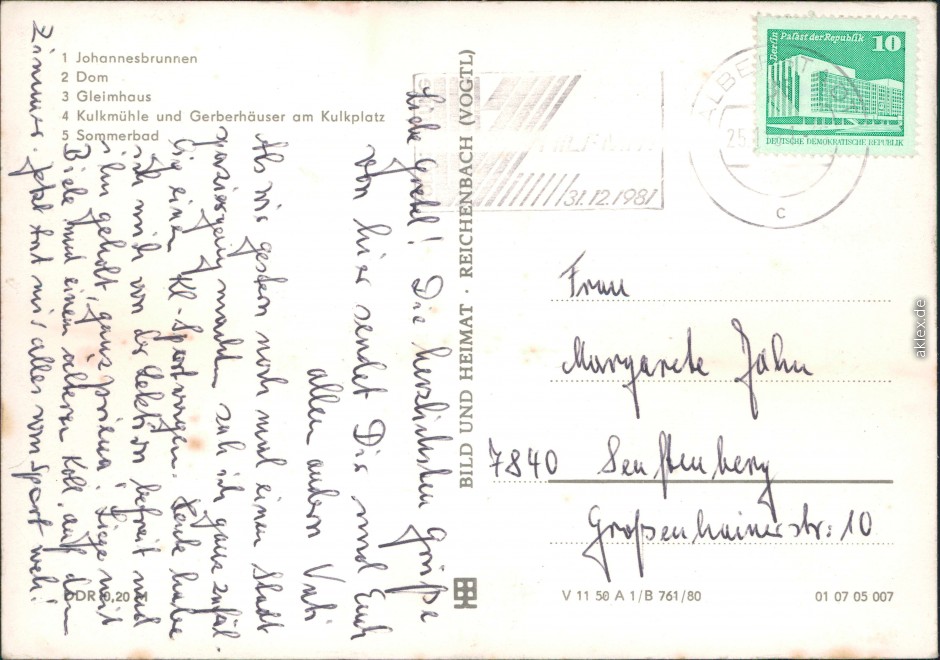 1 Johannesbrunnen
2 Dom
3 Gleimhaus
4 Kulkmühle und Gerberhäuser am Kulkplatz
5 Sommerbad
Liebe Gretel! Die herzlichsten Grüße
von hier sendet Dir und Euch
allen andern Vati
Als wir gestern noch mal einen Stadt
spaziergang machten sah ich ganz zufäl
lig einen Kl-Sportwagen. Heute habe
ich mich von der Lektion befreit und
ihn geholt, ganz prima! Liege mit
Biele und einem älteren Koll. auf dem
Zimmer. Jetzt tut mir alles vom Sport weh!
BILD UND HEIMAT · REICHENBACH (VOGTL)
31.12.1981
25.
C
Berlin Palast der Republik
10
DEUTSCHE DEMOKRATISCHE REPUBLIK
Frau
Margarete Jähn
7840 Senftenberg
Großenhainerstr: 10
DDR 0,20 M
V 11 50 A 1/B 761/80
01 07 05 007
aklex.de